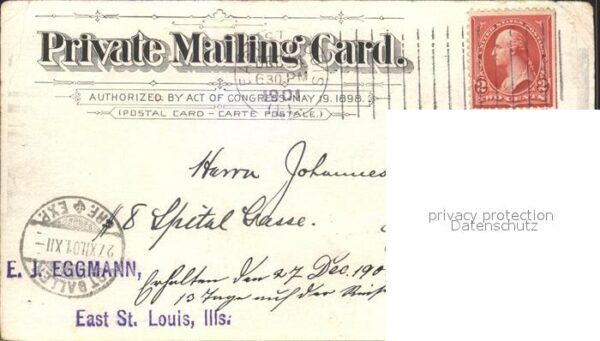 Private Mailing Card.
6 30 PM
1901
AUTHORIZED BY ACT OF CONGRESS, MAY 19, 1898.
(POSTAL CARD – CARTE POSTALE.)
2 CENTS 2
Herrn Johannes
# 8 Spital Gasse.
privacy protection
Datenschutz
BRF. EXP.
27.XII.01.XII–
ST GALLEN
E. J. EGGMANN,
East St. Louis, Ills.
Erhalten den 27 Dec. 190
13 Tage auf der Reise